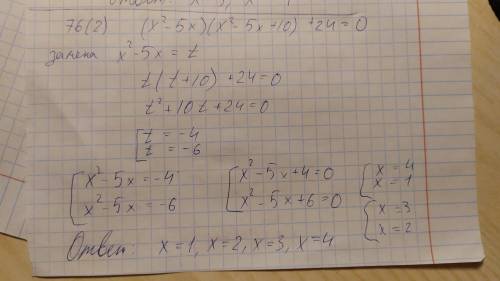 76(2) (x²-5x)(x²-5x+10)+24=0
замена x²-5x = t
t(t+10)+24=0
t²+10t+24=0
[t = -4
t = -6
{x²-5x=-4
x²-5x=-6
{x²-5x+4=0
x²-5x+6=0
{x=4
x=1
{x=3
x=2
Ответ: x=1, x=2, x=3, x=4